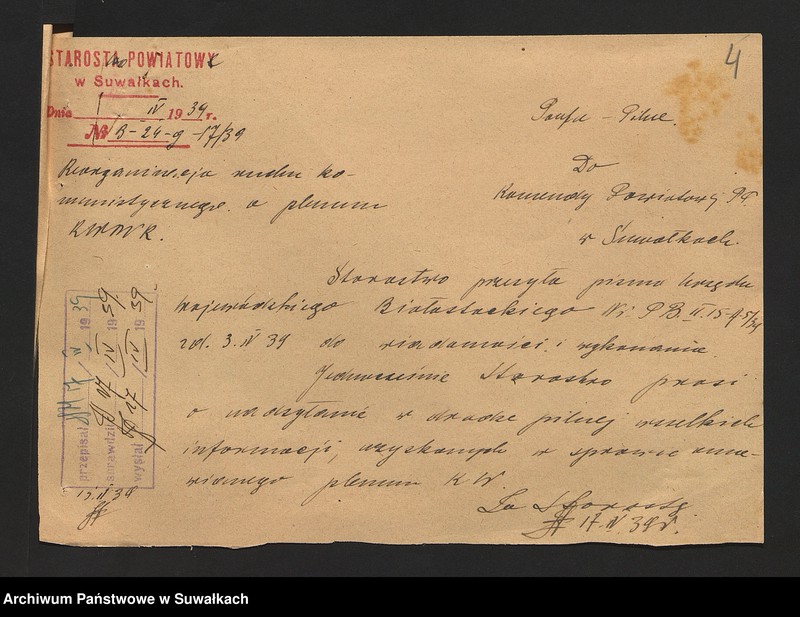 4
STAROSTA POWIATOWY
w Suwałkach.
Dnia IV 1939 r.
№ B-24-g-17/39
Poufne - Pilne.
Reorganizacja ruchu ko-
munistycznego a plenum
Do
Komendy Powiatowej PP.
w Suwałkach.
Starostwo przesyła pismo Urzędu
Wojewódzkiego Białostockiego Nr. PB. II. 15
zd. 3. IV 39 do wiadomości i wykonania.
Jednocześnie Starostwo prosi
o nadsyłanie w drodze pilnej wszelkich
informacji, uzyskanych w sprawie oma-
wianego plenum KW.
Za Starostę
17. IV 39 r.
przepisał IV 1939
sprawdził 17/IV 1939
wysłał 17/IV 1939.
15. IV 39
Archiwum Państwowe w Suwałkach